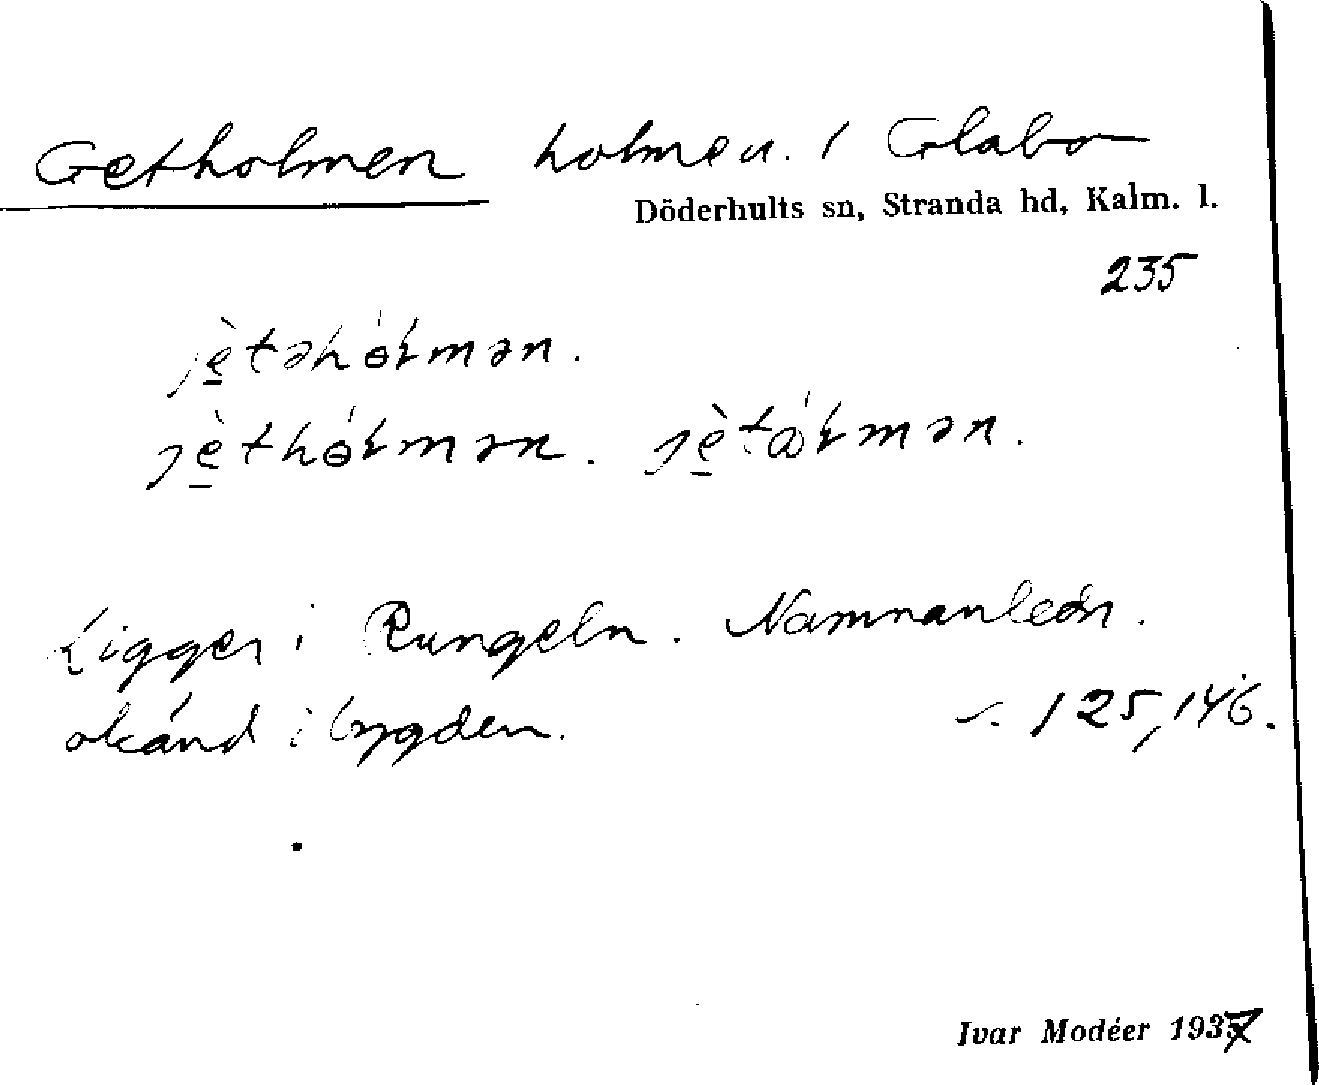 Getholmen holme u. / Glabo
Döderhults sn, Stranda hd, Kalm. l.
235
jè̱təhɵ́ɫmən.
jè̱thɵ́ɫmən. jè̱tɵ́ɫmən.
Ligger i Rungeln. Namnanledn.
okänd i bygden. s. 125, 146.
Ivar Modéer 1937